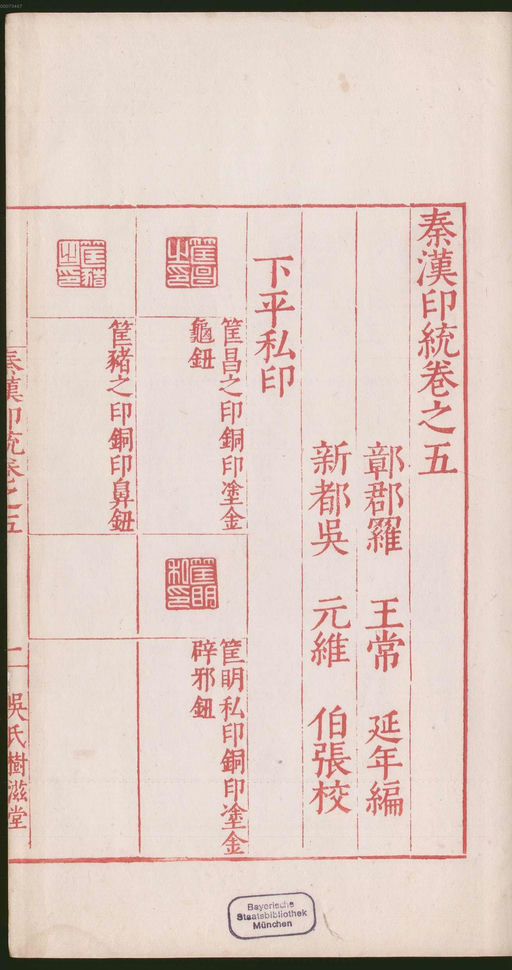 秦漢印統卷之五
鄣郡羅 王常 延年編
新都吳 元維 伯張校
下平私印
筐昌之印
筐昌之印銅印塗金
龜鈕
筐明私印
筐明私印銅印塗金
辟邪鈕
筐豬之印
筐豬之印銅印鼻鈕
秦漢印統卷之五 一 吳氏樹滋堂
Bayerische
Staatsbibliothek
München